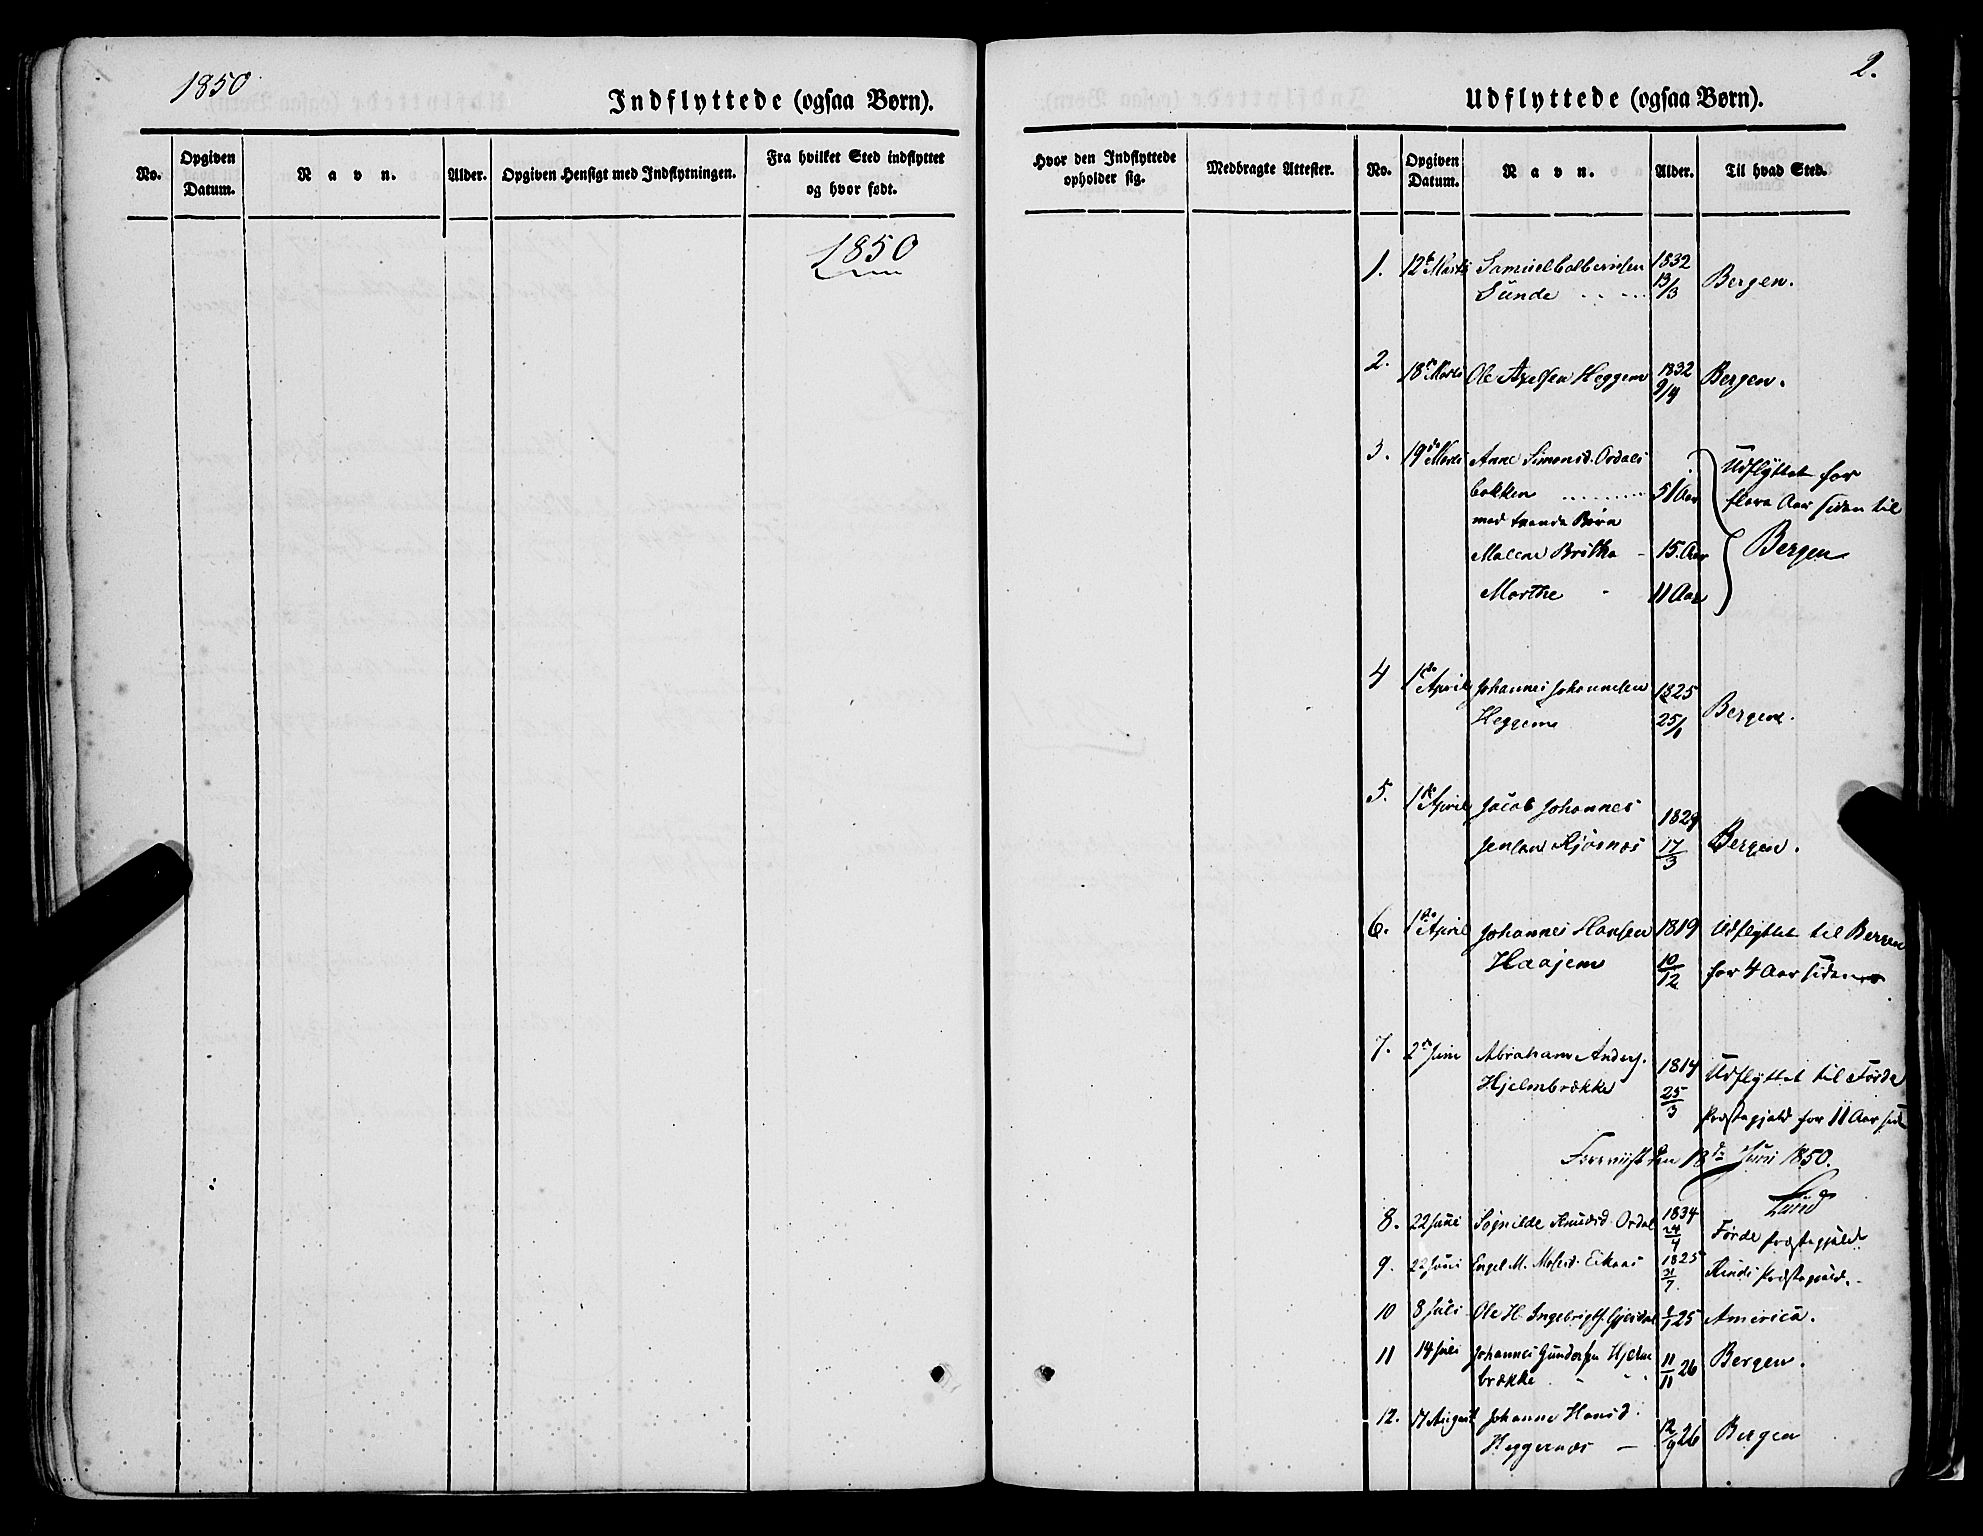 1850
Indflyttede (ogsaa Børn).
No.
Opgiven Datum.
Navn.
Alder.
Opgiven Hensigt med Indflytningen.
Fra hvilket Sted indflyttet og hvor født.
1850
2.
Udflyttede (ogsaa Børn).
Hvor den Indflyttede opholder sig.
Medbragte Attester.
No.
Opgiven Datum.
Navn.
Alder.
Til hvad Sted.
1. 12te Marts Samuel 1832
Sunde 13/3 Bergen.
2. 18de Marts Ole Axelsen Heggem 1832 9/4 Bergen.
3. 19de Marts Anne Simonsd. Ordals
bakken 51 Aar
med tvende Børn
Malene Britha 15. Aar
Marthe 11 Aar
Udflyttet for
flere Aar siden til
Bergen
4 1ste April Johannes Johannesen 1825
Heggem 25/1 Bergen.
5. 1ste April Jacob Johannes
Jensen 1829 17/3 Bergen.
6. 1ste April Johannes Hansen 1819 Udflyttet til Bergen
Haajem 10/12 for 4 Aar siden
7. 2den Juni Abraham Anders. 1814 Udflyttet til Førde
Hjelmbrække 25/3 Præstegjeld for 11 Aar sid
Foreviist den 18de Juni 1850.
8. 22 Juni Knudsd. Ordal 1834 24/4 Førde Præstegjeld
9. 22 Juni Engel M. Mosesd. Eikaas 1825 31/7 Kinds Præstegjeld.
10 8 Juli Ole H. Ingebrigts. 25 America.
11 14 Juli Johannes Gundersen Hjelm
brække 11/11 26 Bergen.
12. 17 August Johanne Hansd.
Heggernæs 12/9 26 Bergen